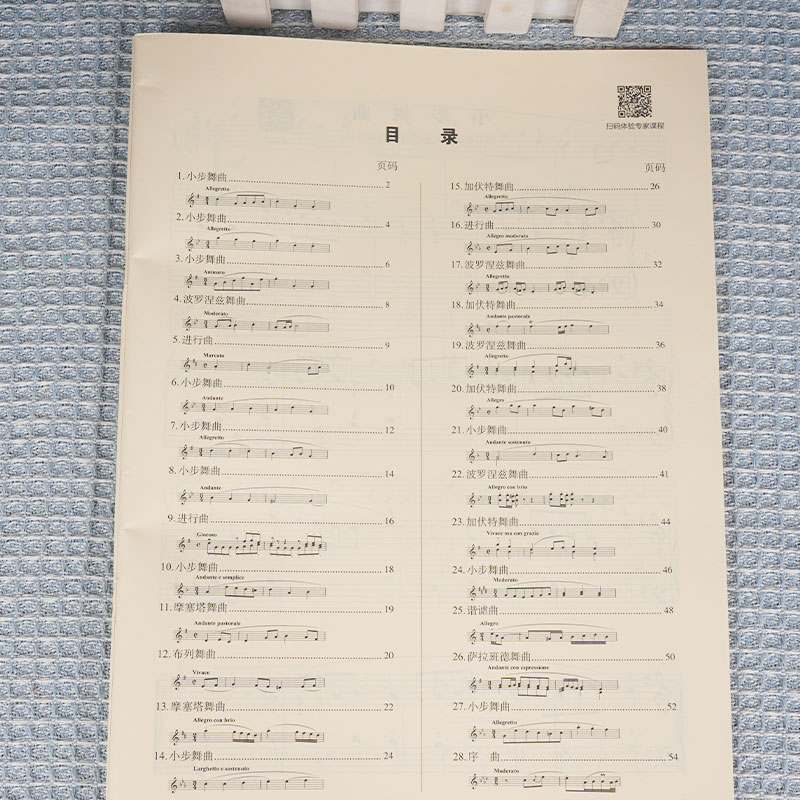 扫码体验专家课程
目 录
页码
1.小步舞曲 2
Allegretto
2.小步舞曲 4
Allegretto
3.小步舞曲 6
Animato
4.波罗涅兹舞曲 8
Moderato
5.进行曲 9
Marcato
6.小步舞曲 10
Andante
7.小步舞曲 12
Allegretto
8.小步舞曲 14
Andante
9.进行曲 16
Giocoso
10.小步舞曲 18
Andante e semplice
11.摩塞塔舞曲 19
Andante pastorale
12.布列舞曲 20
Vivace
13.摩塞塔舞曲 22
Allegro con brio
14.小步舞曲 24
Larghetto e sostenuto
页码
15.加伏特舞曲 26
Allegretto
16.进行曲 30
Allegro moderato
17.波罗涅兹舞曲 32
Allegretto
18.加伏特舞曲 34
Andante pastorale
19.波罗涅兹舞曲 36
Allegretto
20.加伏特舞曲 38
Allegro
21.小步舞曲 40
Andante sostenuto
22.波罗涅兹舞曲 41
Allegro con brio
23.加伏特舞曲 44
Vivace ma con grazia
24.小步舞曲 46
Moderato
25.谐谑曲 48
Allegro
26.萨拉班德舞曲 50
Andante con espressione
27.小步舞曲 52
Allegretto
28.序 曲 54
Moderato